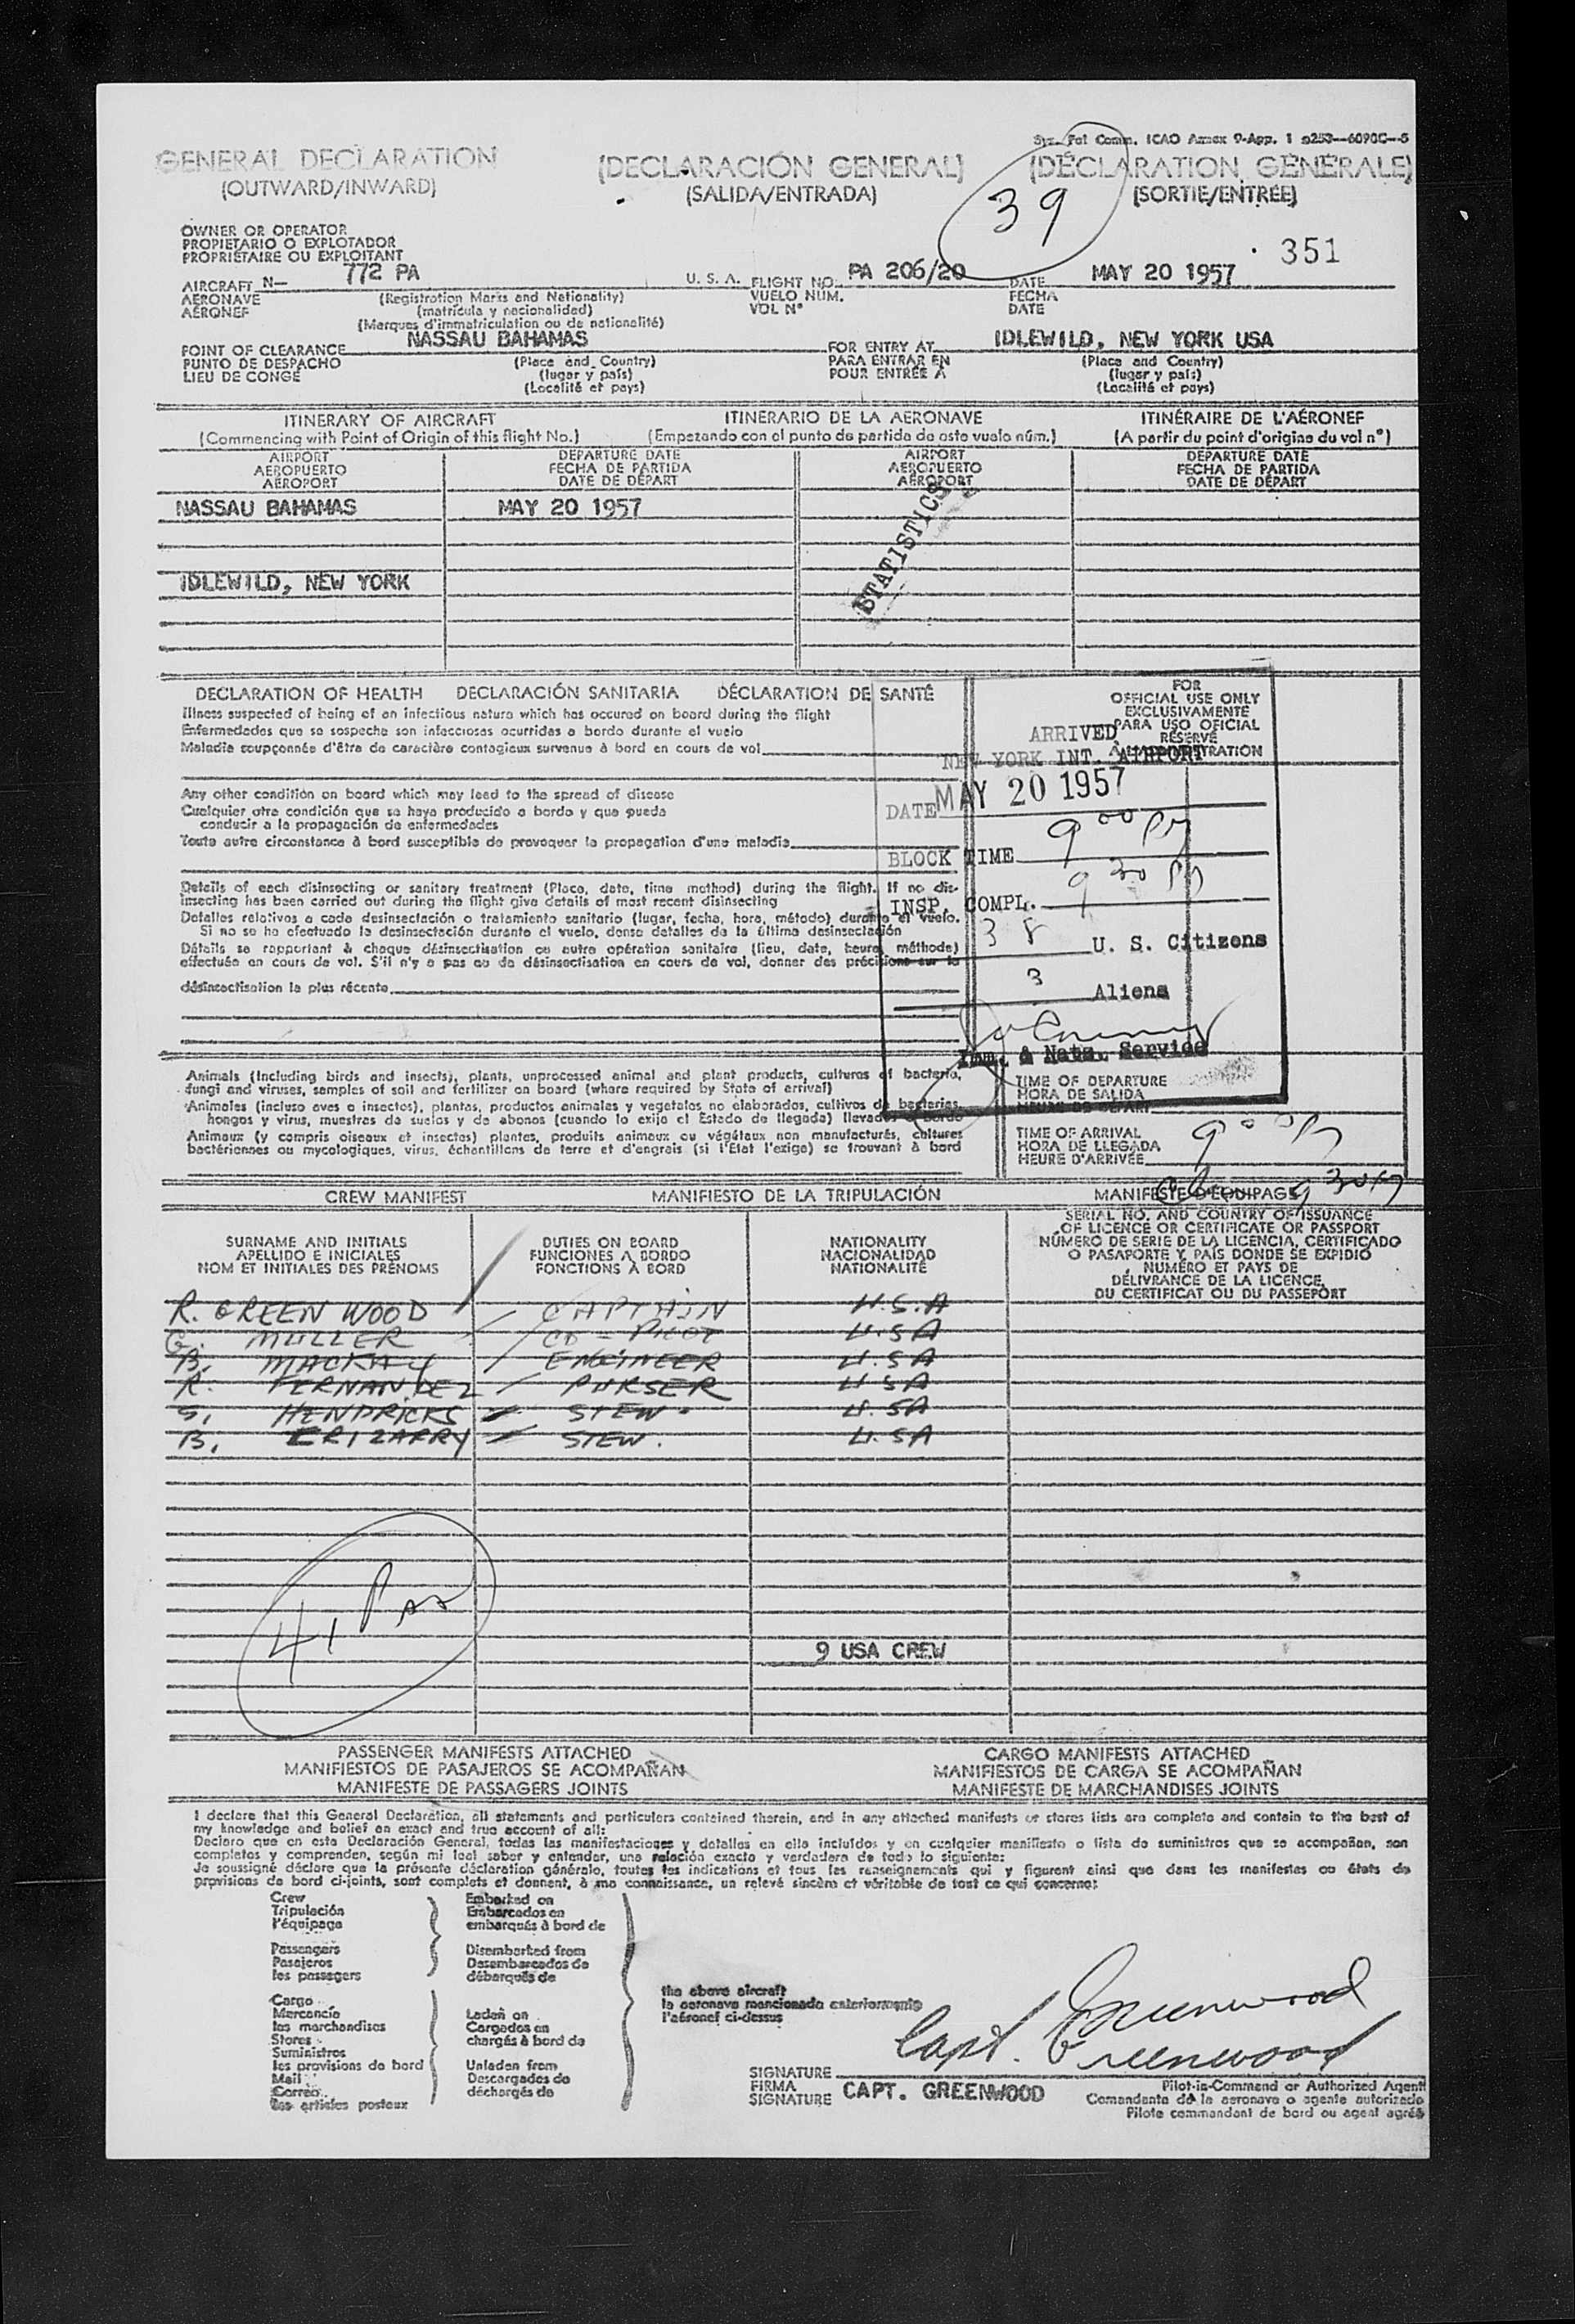 Sys. Fol Comm. ICAO Annex 9-App. 1 s253--6090C--5
GENERAL DECLARATION (DECLARACIÓN GENERAL) (DÉCLARATION GÉNÉRALE)
(OUTWARD/INWARD) (SALIDA/ENTRADA) (SORTIE/ENTRÉE)
39
351
OWNER OR OPERATOR
PROPIETARIO O EXPLOTADOR
PROPRIÉTAIRE OU EXPLOITANT
AIRCRAFT N- 772 PA U. S. A. FLIGHT NO. PA 206/20 DATE MAY 20 1957
AERONAVE (Registration Marks and Nationality) VUELO NÚM. FECHA
AÉRONEF (matrícula y nacionalidad) VOL N° DATE
(Marques d'immatriculation ou de nationalité)
POINT OF CLEARANCE NASSAU BAHAMAS FOR ENTRY AT IDLEWILD, NEW YORK USA
PUNTO DE DESPACHO (Place and Country) PARA ENTRAR EN (Place and Country)
LIEU DE CONGÉ (lugar y país) POUR ENTRÉE À (lugar y país)
(Localité et pays) (Localité et pays)
ITINERARY OF AIRCRAFT ITINERARIO DE LA AERONAVE ITINÉRAIRE DE L'AÉRONEF
(Commencing with Point of Origin of this flight No.) (Empezando con el punto de partida de este vuelo núm.) (A partir du point d'origine du vol n°)
AIRPORT DEPARTURE DATE AIRPORT DEPARTURE DATE
AEROPUERTO FECHA DE PARTIDA AEROPUERTO FECHA DE PARTIDA
AÉROPORT DATE DE DÉPART AÉROPORT DATE DE DÉPART
NASSAU BAHAMAS MAY 20 1957
STATISTICS
IDLEWILD, NEW YORK
DECLARATION OF HEALTH DECLARACIÓN SANITARIA DÉCLARATION DE SANTÉ
Illness suspected of being of an infectious nature which has occured on board during the flight
Enfermedades que se sospeche son infecciosas ocurridas a bordo durante el vuelo
Maladie soupçonnée d'être de caractère contagieux survenue à bord en cours de vol
Any other condition on board which may lead to the spread of disease
Cualquier otra condición que se haya producido a bordo y que pueda
conducir a la propagación de enfermedades
Toute autre circonstance à bord susceptible de provoquer la propagation d'une maladie
Details of each disinsecting or sanitary treatment (Place, date, time method) during the flight. If no dis-
insecting has been carried out during the flight give details of most recent disinsecting
Detalles relativos a cada desinsectación o tratamiento sanitario (lugar, fecha, hora, método) durante el vuelo.
Si no se ha efectuado la desinsectación durante el vuelo, dense detalles de la última desinsectación
Détails se rapportant à chaque désinsectisation ou autre opération sanitaire (lieu, date, heure, méthode)
effectuée en cours de vol. S'il n'y a pas eu de désinsectisation en cours de vol, donner des précisions sur la
désinsectisation la plus récente
FOR
OFFICIAL USE ONLY
EXCLUSIVAMENTE
PARA USO OFICIAL
RÉSERVÉ
À L'ADMINISTRATION
ARRIVED
NEW YORK INT. AIRPORT
DATE MAY 20 1957
BLOCK TIME 9 00 PM
INSP. COMPL. 9 30 PM
38 U. S. Citizens
3 Aliens
Imm. & Natz. Service
Animals (Including birds and insects), plants, unprocessed animal and plant products, cultures of bacteria,
fungi and viruses, samples of soil and fertilizer on board (where required by State of arrival)
Animales (incluso aves o insectos), plantas, productos animales y vegetales no elaborados, cultivos de bacterias,
hongos y virus, muestras de suelos y de abonos (cuando lo exija el Estado de llegada) llevados a bordo
Animaux (y compris oiseaux et insectes) plantes, produits animaux ou végétaux non manufacturés, cultures
bactériennes ou mycologiques, virus, échantillons de terre et d'engrais (si l'Etat l'exige) se trouvant à bord
TIME OF DEPARTURE
HORA DE SALIDA
HEURE DE DÉPART
TIME OF ARRIVAL 9 00 PM
HORA DE LLEGADA
HEURE D'ARRIVÉE
9 30 PM
CREW MANIFEST MANIFIESTO DE LA TRIPULACIÓN MANIFESTE D'ÉQUIPAGE
SURNAME AND INITIALS DUTIES ON BOARD NATIONALITY SERIAL NO. AND COUNTRY OF ISSUANCE
APELLIDO E INICIALES FUNCIONES A BORDO NACIONALIDAD OF LICENCE OR CERTIFICATE OR PASSPORT
NOM ET INITIALES DES PRÉNOMS FONCTIONS À BORD NATIONALITÉ NÚMERO DE SERIE DE LA LICENCIA, CERTIFICADO
O PASAPORTE Y PAÍS DONDE SE EXPIDIÓ
NUMÉRO ET PAYS DE
DÉLIVRANCE DE LA LICENCE,
DU CERTIFICAT OU DU PASSEPORT
R. GREENWOOD CAPTAIN U.S.A
G. MULLER CO-PILOT U.S.A
B. MACKAY ENGINEER U.S.A
R. FERNANDEZ PURSER U.S.A
S. HENDRICKS STEW. U.S.A
B. ERIZARRY STEW. U.S.A
41 Pax
9 USA CREW
PASSENGER MANIFESTS ATTACHED CARGO MANIFESTS ATTACHED
MANIFIESTOS DE PASAJEROS SE ACOMPAÑAN MANIFIESTOS DE CARGA SE ACOMPAÑAN
MANIFESTE DE PASSAGERS JOINTS MANIFESTE DE MARCHANDISES JOINTS
I declare that this General Declaration, all statements and particulars contained therein, and in any attached manifests or stores lists are complete and contain to the best of
my knowledge and belief an exact and true account of all:
Declaro que en esta Declaración General, todas las manifestaciones y detalles en ella incluídos y en cualquier manifiesto o lista de suministros que se acompañan, son
completos y comprenden, según mi leal saber y entender, una relación exacta y verdadera de todo lo siguiente:
Je soussigné déclare que la présente déclaration générale, toutes les indications et tous les renseignements qui y figurent ainsi que dans les manifestes ou états de
provisions de bord ci-joints, sont complets et donnent, à ma connaissance, un relevé sincère et véritable de tout ce qui concerne:
Crew Embarked on
Tripulación Embarcados en
l'équipage embarqués à bord de
Passengers Disembarked from
Pasajeros Desembarcados de
les passagers débarqués de
the above aircraft
la aeronave mencionada anteriormente
l'aéronef ci-dessus
Cargo
Mercancía Laden on
les marchandises Cargados en
Stores chargés à bord de
Suministros
les provisions de bord Unladen from
Mail Descargados de
Correo déchargés de
les articles postaux
Greenwood
Capt. Greenwood
SIGNATURE
FIRMA CAPT. GREENWOOD Pilot-in-Command or Authorized Agent
SIGNATURE Comandante de la aeronave o agente autorizado
Pilote commandant de bord ou agent agréé